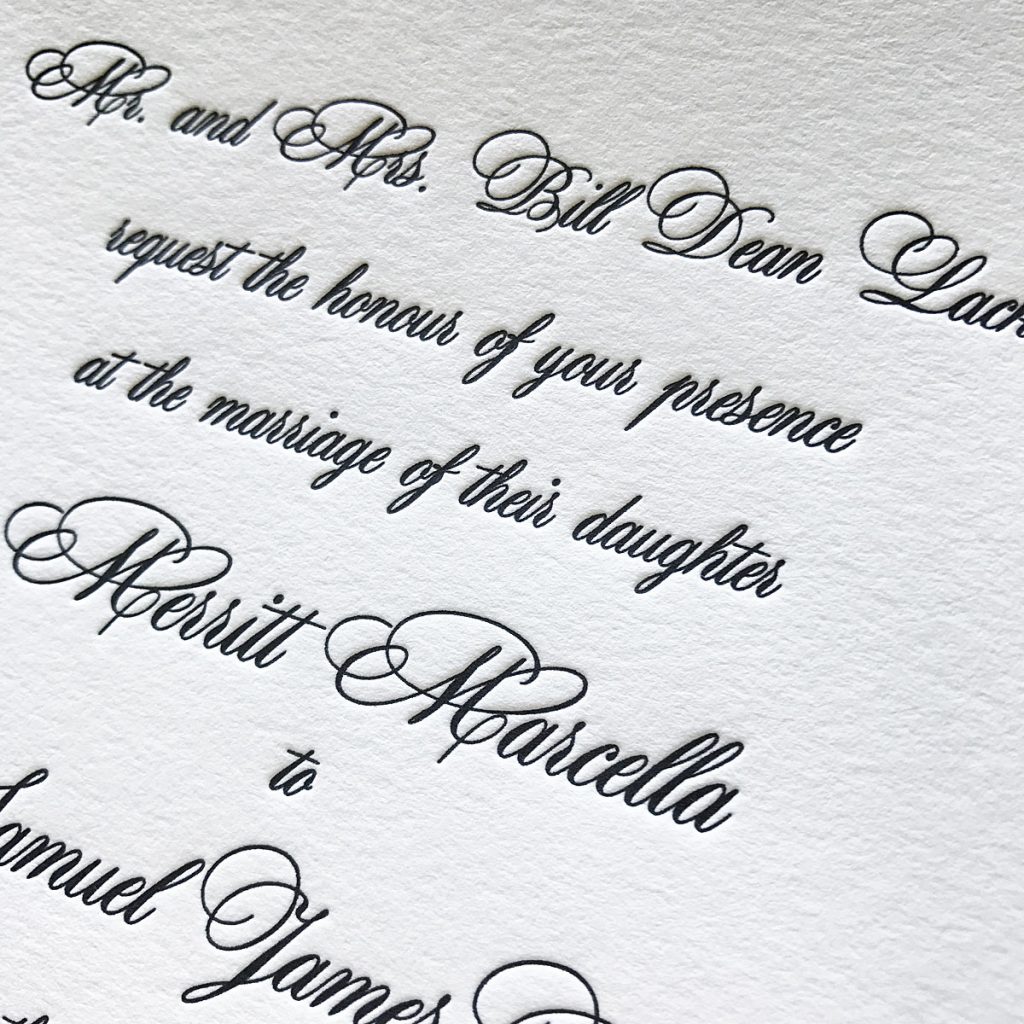 Mr. and Mrs. Bill Dean
request the honour of your presence
at the marriage of their daughter
Merritt Marcella
to
Samuel James